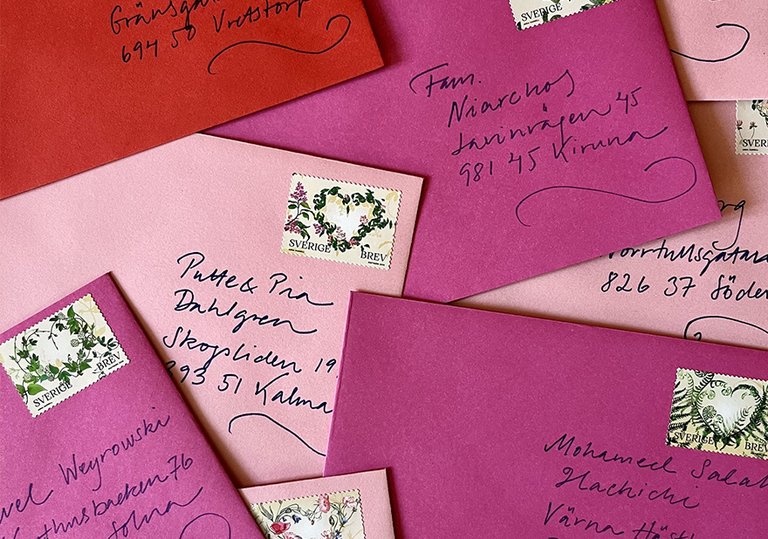 Gränsga
694 50 Vretstorp
SVERIGE
Fam.
Niarchos
Lavinvägen 45
981 45 Kiruna
SVERIGE
BREV
Putte & Pia
Dahlgren
Skogliden 19
393 51 Kalma
826 37 Söder
SVERIGE
BREV
Weyrowski
76
SVERIGE
BREV
Mohamed Salah
Hachichi
Värna